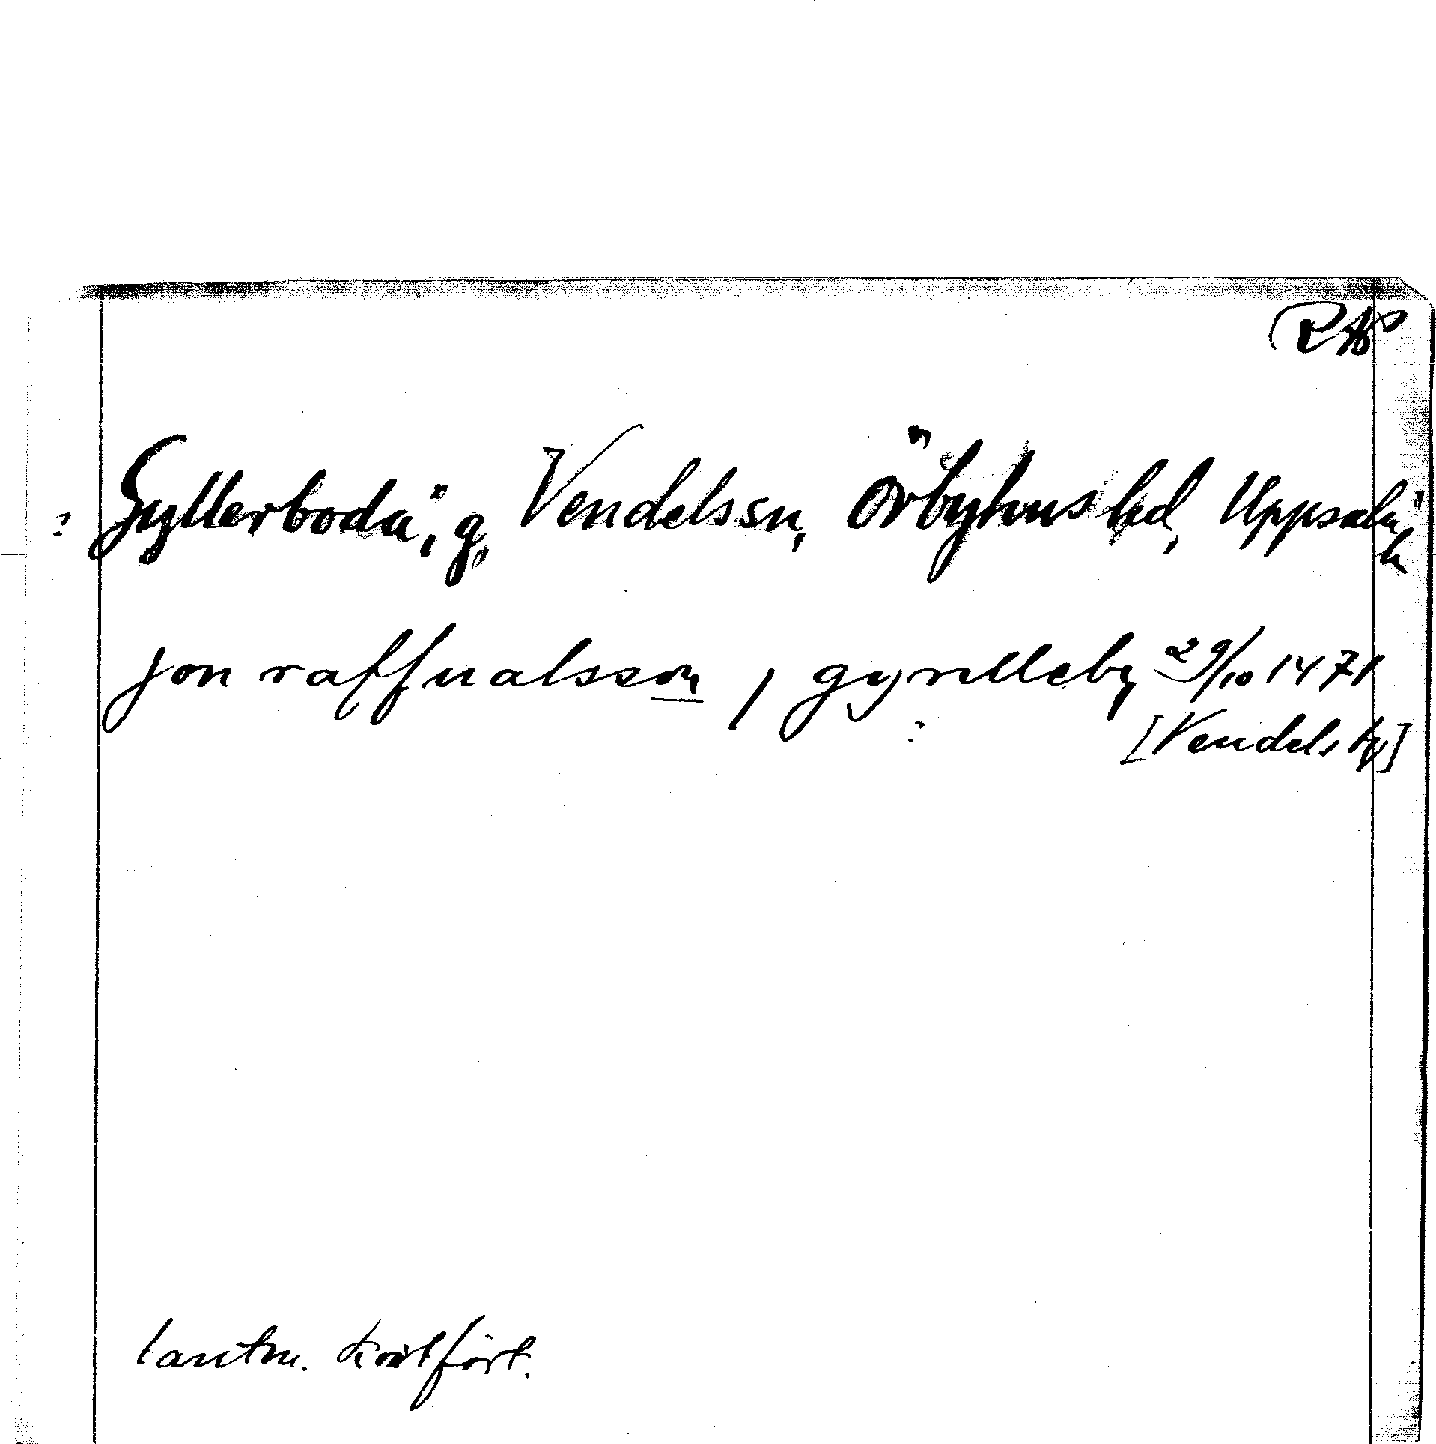 RAp
? Gyllerboda, g, Vendels sn, Örbyhus hd, Uppsala l.
jon raffualsson / gyrilleby 29/10 1471
[Vendels ty]
lantm. kartfört.